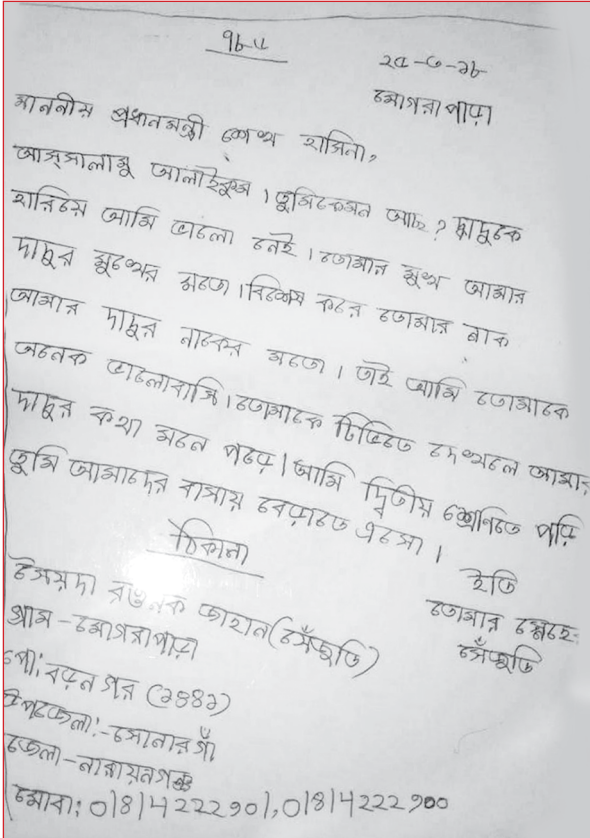 ৭৮৬
২৫-৩-১৮
মোগরাপাড়া
মাননীয় প্রধানমন্ত্রী শেখ হাসিনা,
আস্সালামু আলাইকুম। তুমিকেমন আছ? দাদুকে
হারিয়ে আমি ভালো নেই। তোমার মুখ আমার
দাদুর মুখের মতো। বিশেষ করে তোমার নাক
আমার দাদুর নাকের মতো। তাই আমি তোমাকে
অনেক ভালোবাসি। তোমাকে টিভিতে দেখলে আমার
দাদুর কথা মনে পড়ে। আমি দ্বিতীয় শ্রেণিতে পড়ি
তুমি আমাদের বাসায় বেড়াতে এসো।
ইতি
তোমার স্নেহের
সেঁজুতি
ঠিকানা
সৈয়দা রওনক জাহান (সেঁজুতি)
গ্রাম - মোগরাপাড়া
পো: বড়নগর (১৪৪১)
উপজেলা:- সোনারগাঁ
জেলা - নারায়নগঞ্জ
মোবা: 01814222901, 01814222900